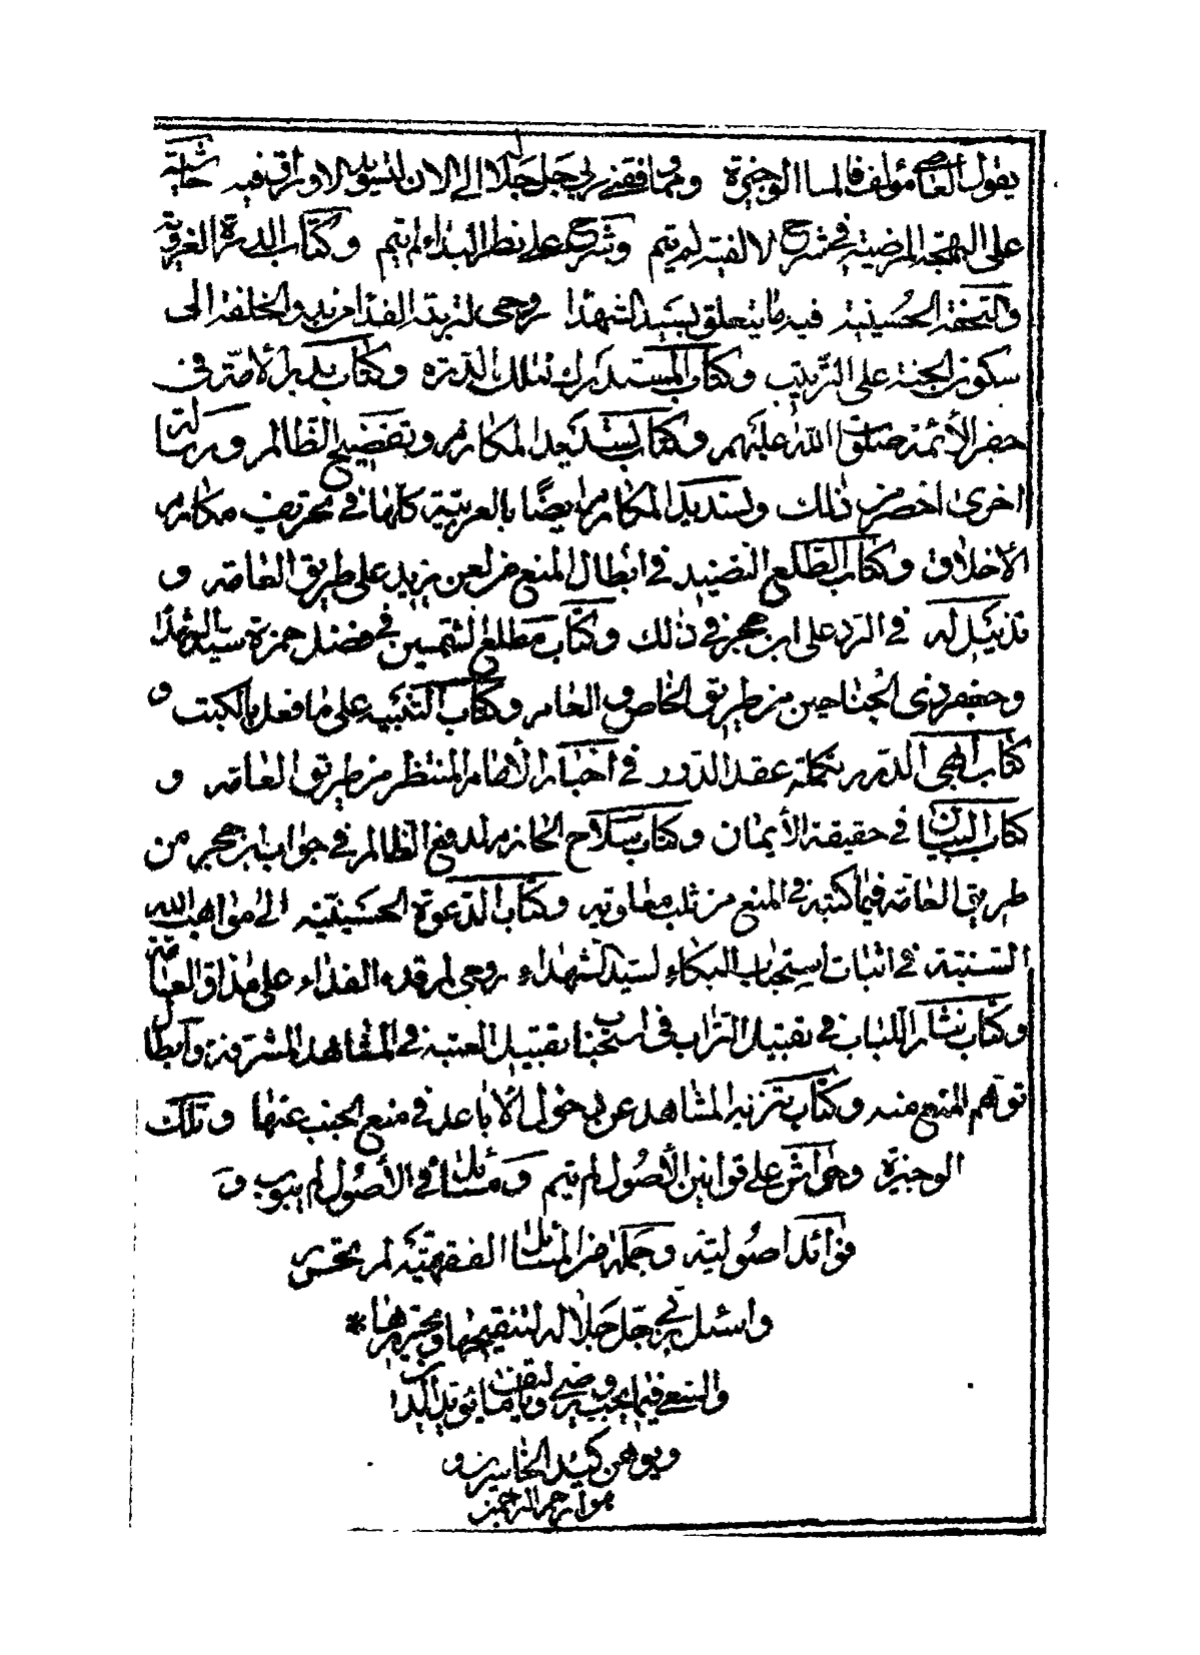 يقول العاصي مؤلف هذا الوجيزة ومما وفقني ربي جل جلاله الى الان لتسويد الاوراق فيه حاشية
على البهجة المرضية في شرح الالفية لم يتم وشرح على نظر البداء لم يتم وكتاب الدرة الغروية
والتحفة الحسينية فيه ما يتعلق بسيد الشهدا روحي لتربته الفدا من بدو الخلقة الى
سكون الجنة على الترتيب وكتاب المستدرك لتلك الدرة وكتاب في
الأئمة صلوات الله عليهم وكتاب تسديد المكارم وتفضيح الظالم ورسالة
اخرى اخصر من ذلك وتسديد المكارم ايضًا بالعربية كلها في تحريف مكارم
الأخلاق وكتاب الطلع النضيد في ابطال المنع من لعن يزيد على طريق العامة و
تذييل له في الرد على ابن حجر في ذلك وكتاب مطلع الشمسين في فضل حمزة سيد الشهدا
وجعفر ذي الجناحين من طريق الخاص والعام وكتاب التنبيه على ما فعل بالكتب و
كتاب ابهى الدرر تكملة عقد الدرر في أخبار الأمام المنتظر من طريق العامة و
كتاب البيان في حقيقة الأيمان وكتاب سلاح الحازم لدفع الظالم في جواب ابن حجر من
طريق العامة فيما كتبه في المنع من ثلب معاوية وكتاب الدعوة الحسينية الى مواهب الله
السنية في اثبات استحباب البكاء لسيد الشهداء روحي لمرقده الفداء على مذاق العامة
وكتاب نثار اللباب في تقبيل التراب في استحباب تقبيل العتبة في المشاهد المشرفة وابطال
توهم المنع منه وكتاب تنزيه المشاهد عن دخول الأباعد في منع الجنب عنها وتلك
الوجيزة وحواش على قوانين الأصول لم يتم ومسائل في الأصول لم يبوب و
فوائد اصولية وجملة من المسائل الفقهية لم تحرر
واسئل ربي جل جلاله لتنقيحها وتحريرها *
والسعي فيما يحب ويرضى ويقف
ويوهن كيد الخاسرين و
هو ارحم الراحمين